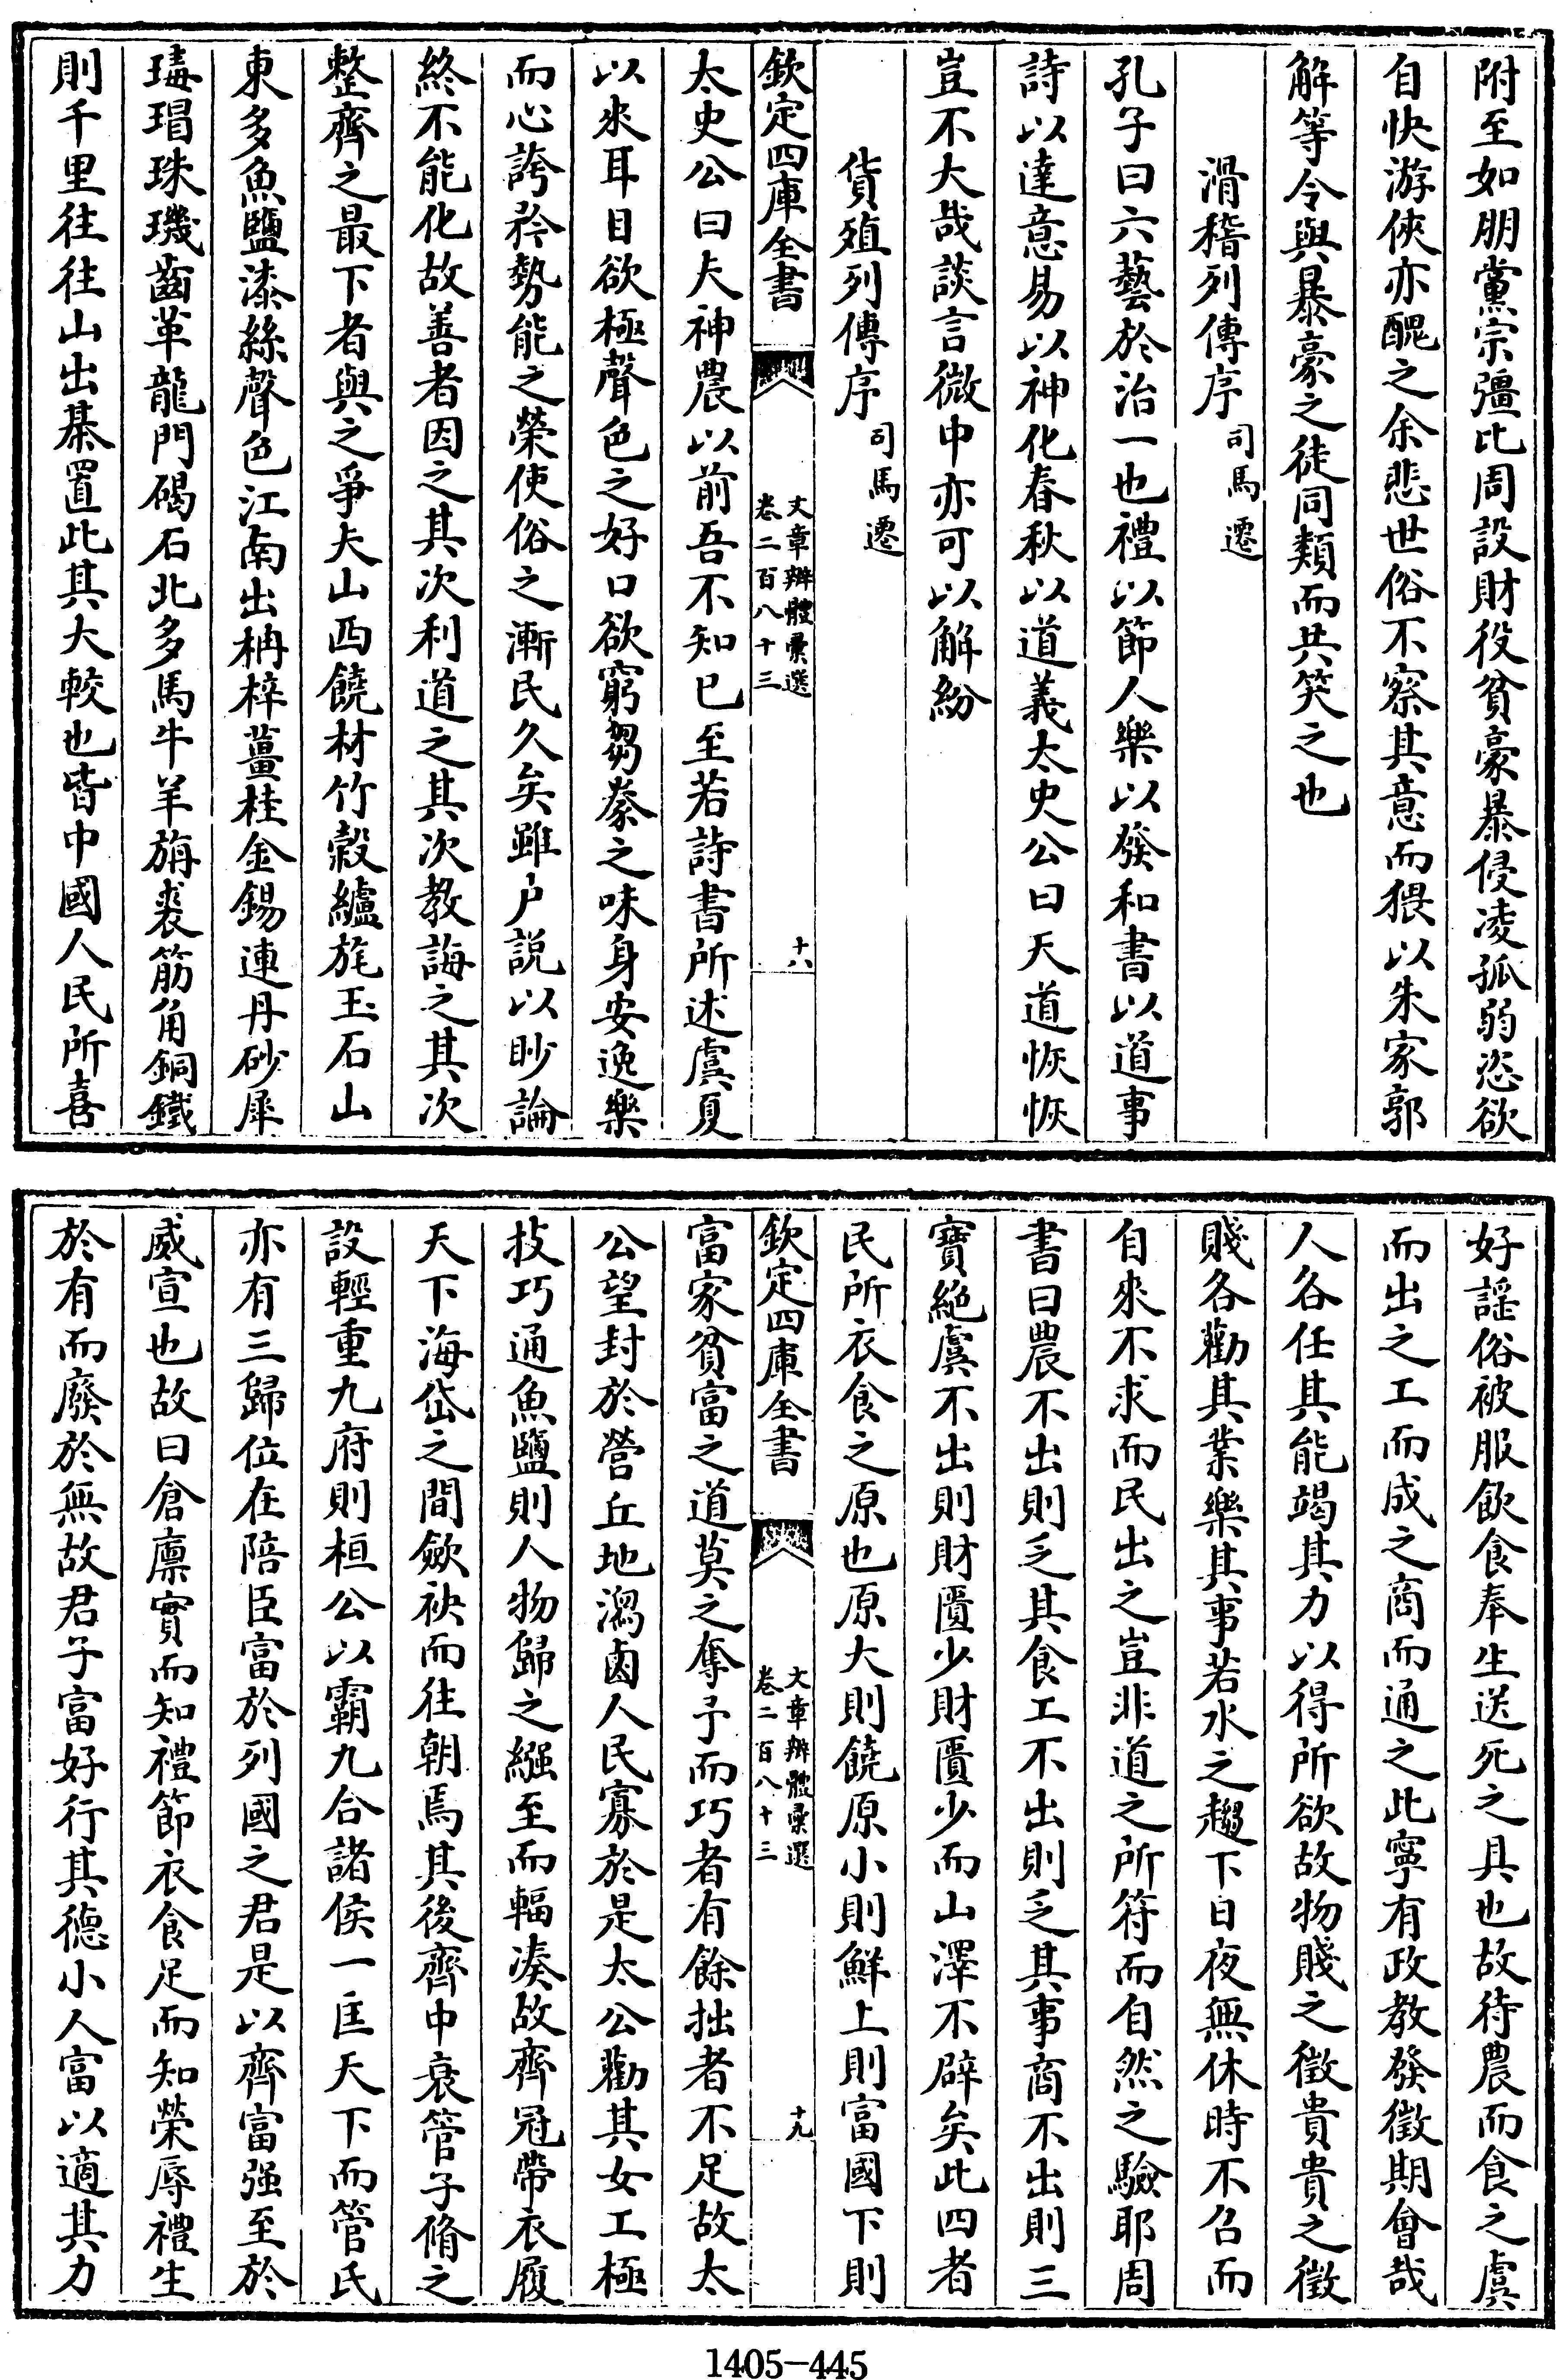 附至如朋黨宗彊比周設財役貧豪暴侵凌孤弱恣欲
自快游俠亦醜之余悲世俗不察其意而猥以朱家郭
解等令與暴豪之徒同類而共笑之也
滑稽列傳序 司馬遷
孔子曰六藝於治一也禮以節人樂以發和書以道事
詩以達意易以神化春秋以道義太史公曰天道恢恢
豈不大哉談言微中亦可以解紛
貨殖列傳序 司馬遷
欽定四庫全書
文章辨體彙選
卷二百八十三
十八
太史公曰夫神農以前吾不知已至若詩書所述虞夏
以來耳目欲極聲色之好口欲窮芻豢之味身安逸樂
而心誇矜勢能之榮使俗之漸民久矣雖户說以眇論
終不能化故善者因之其次利道之其次教誨之其次
整齊之最下者與之爭夫山西饒材竹穀纑旄玉石山
東多魚鹽漆絲聲色江南出枏梓薑桂金錫連丹砂犀
瑇瑁珠璣齒革龍門碣石北多馬牛羊旃裘筋角銅鐵
則千里往往山出棊置此其大較也皆中國人民所喜
好謡俗被服飲食奉生送死之具也故待農而食之虞
而出之工而成之商而通之此寧有政教發徵期會哉
人各任其能竭其力以得所欲故物賤之徵貴貴之徵
賤各勸其業樂其事若水之趨下日夜無休時不召而
自來不求而民出之豈非道之所符而自然之驗耶周
書曰農不出則乏其食工不出則乏其事商不出則三
寶絶虞不出則財匱少財匱少而山澤不辟矣此四者
民所衣食之原也原大則饒原小則鮮上則富國下則
欽定四庫全書
文章辨體彙選
卷二百八十三
十九
富家貧富之道莫之奪予而巧者有餘拙者不足故太
公望封於營丘地潟鹵人民寡於是太公勸其女工極
技巧通魚鹽則人物歸之繦至而輻湊故齊冠帶衣履
天下海岱之間歛袂而往朝焉其後齊中衰管子脩之
設輕重九府則桓公以霸九合諸侯一匡天下而管氏
亦有三歸位在陪臣富於列國之君是以齊富强至於
威宣也故曰倉廪實而知禮節衣食足而知榮辱禮生
於有而廢於無故君子富好行其德小人富以適其力
1405-445